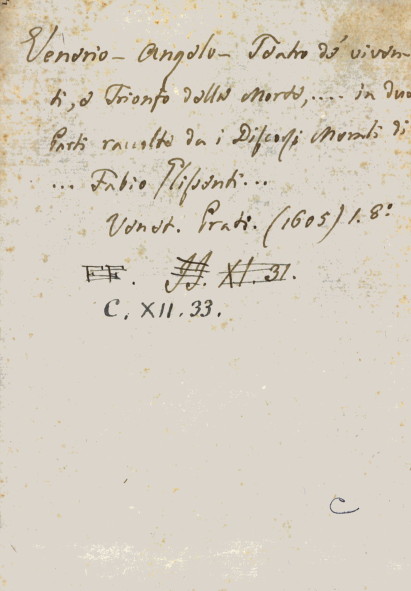 Venerio - Angelo - Teatro de' viven-
ti, e Trionfo della Morte, .... in due
Parti raccolte da i Discorsi Morali di
... Fabio Glissenti ...
Venet. Prati. (1605) 1. 8º
FF. JJ. XI. 31.
C. XII. 33.
C